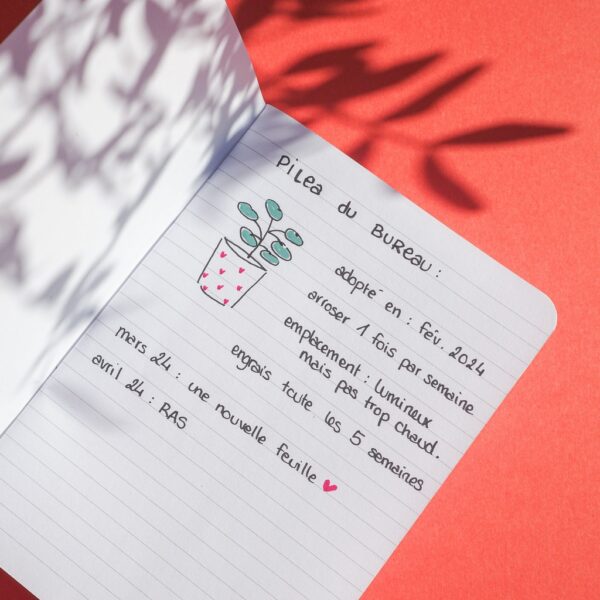 Pilea du Bureau :
adopté en : fév. 2024
arroser 1 fois par semaine
emplacement : lumineux
mais pas trop chaud.
engrais toute les 5 semaines
mars 24 : une nouvelle feuille ♥
avril 24 : RAS